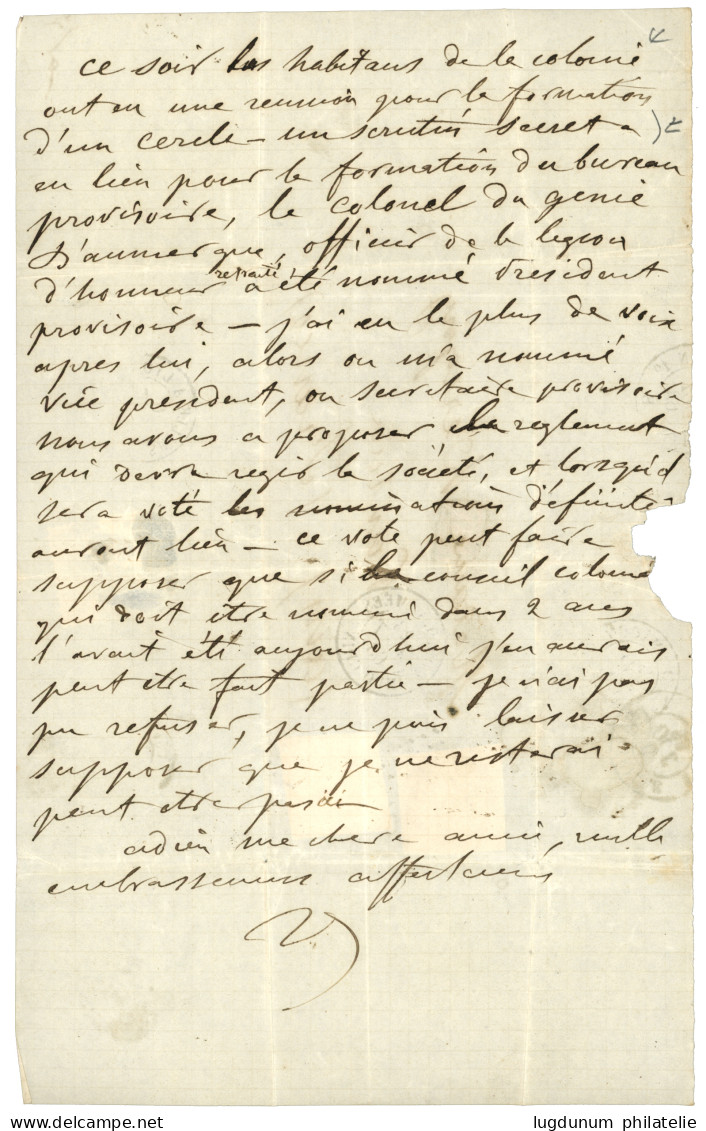 ce soir les habitans de la colonie
ont eu une reunion pour la formation
d'un cercle - un scrutin secret a
eu lieu pour la formation du bureau
provisoire, le colonel du genie
D'aumerque, officier de la legion
d'honneur retraité a été nommé President
provisoire - j'ai eu le plus de voix
apres lui, alors on m'a nommé
vice president, un secretaire provisoire
nous avons a proposer le reglement
qui devra regir la société, et lorsqu'il
sera voté les nominations définit
auront lieu - ce vote peut faire
supposer que si le conseil colonia
qui doit etre nommé dans 2 ans
l'avait été aujourd'hui j'en aurais
peut etre fait partie - je n'ai pas
pu refuser, je ne puis laisser
supposer que je ne resterai
peut etre pas ici
adieu me chere amie, mille
embrassemens affectueux
lugdunum philatelie